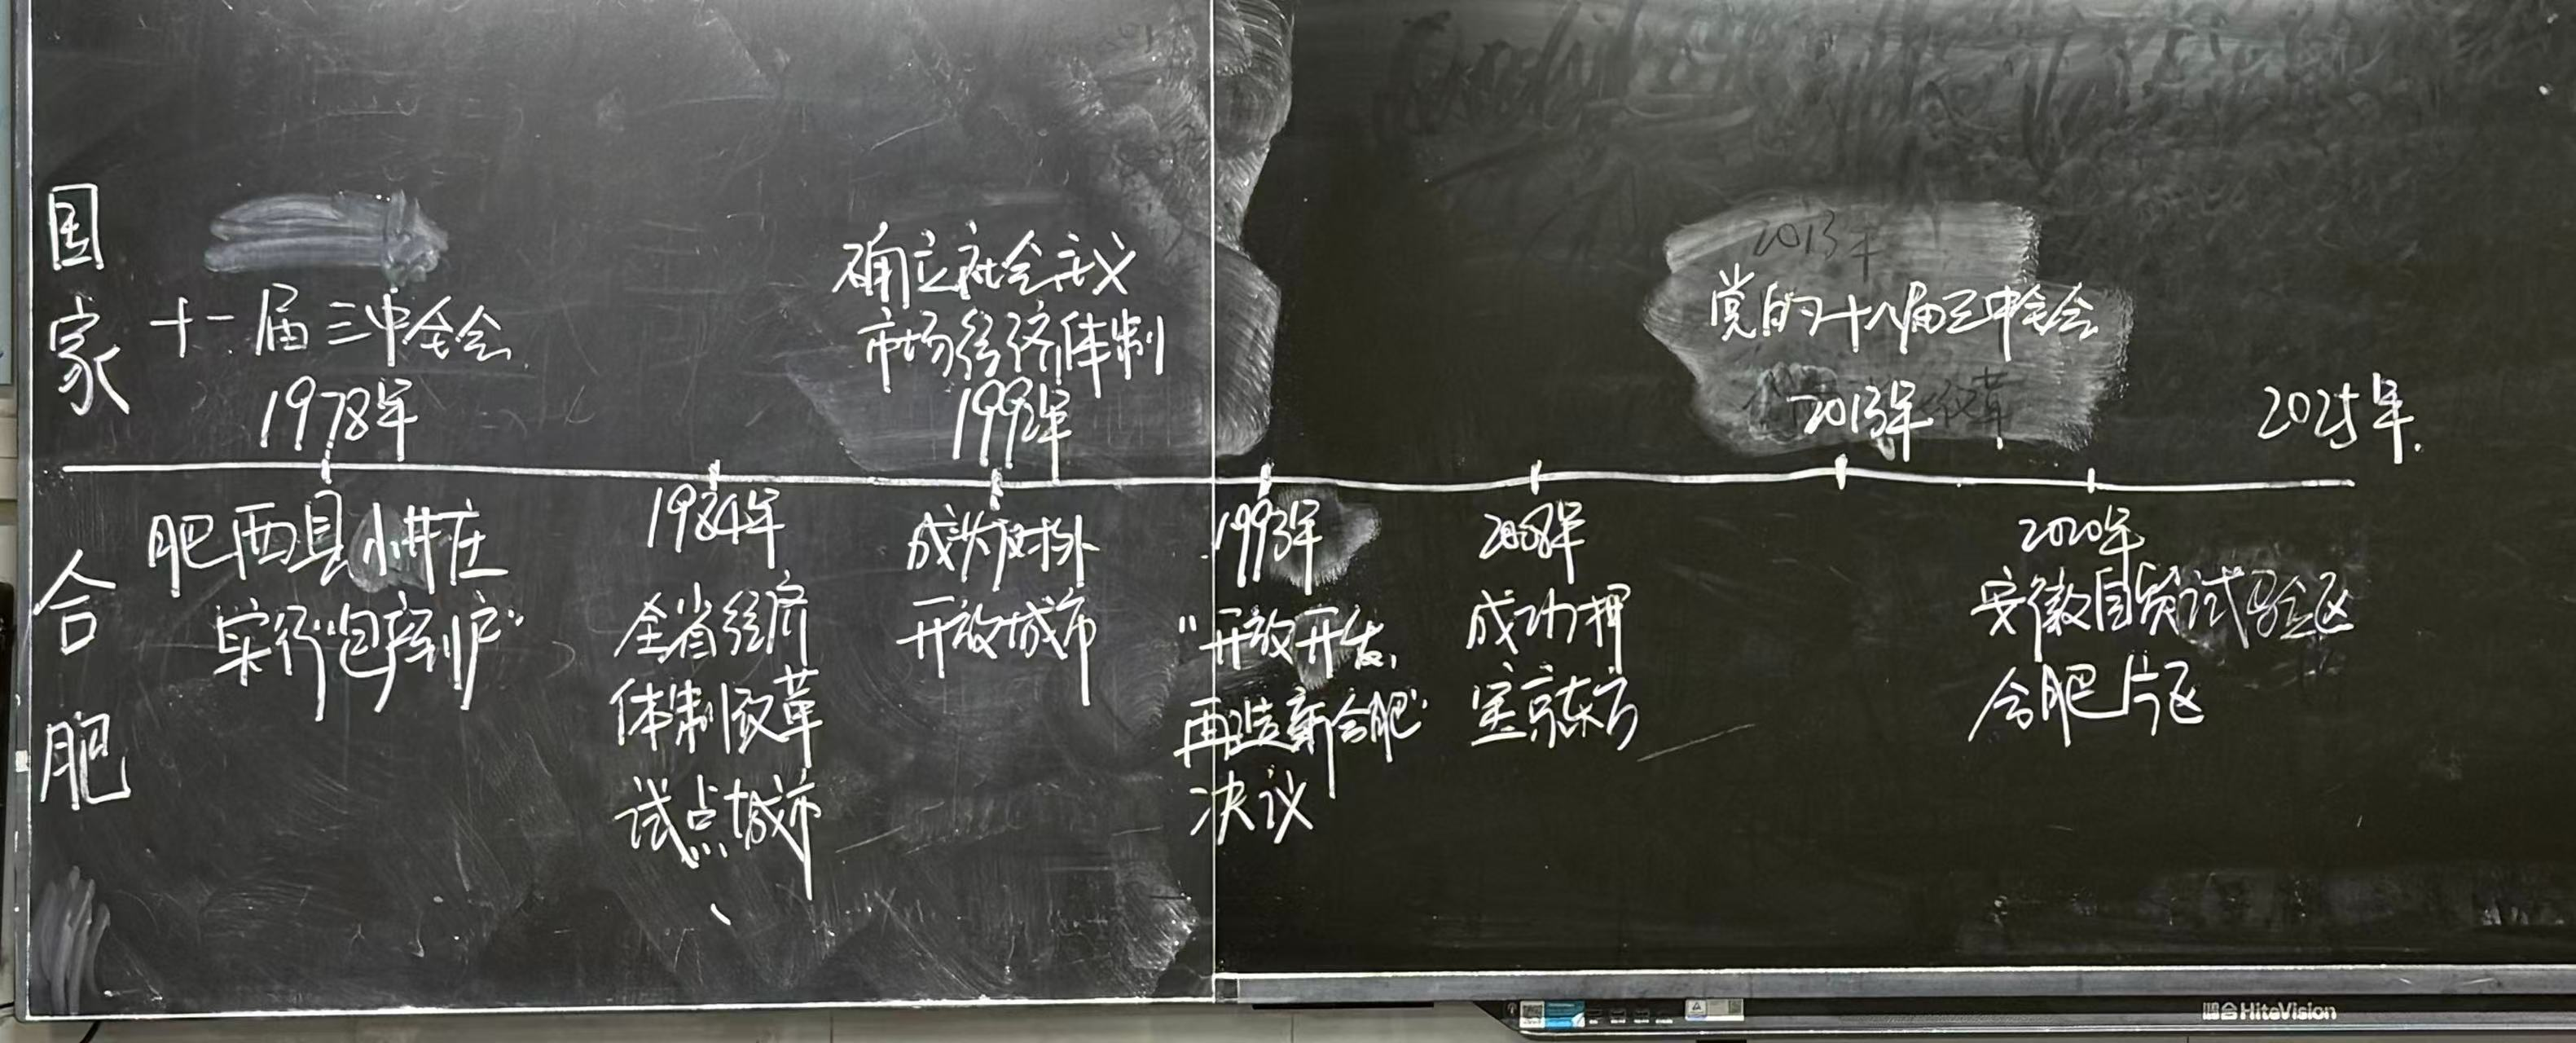 国家
十一届三中全会
1978年
确立社会主义
市场经济体制
1992年
2013年
党的十八届三中全会
2013年
改革
2025年.
合肥
肥西县小井庄
实行"包产到户"
1984年
全省经济
体制改革
试点城市
成为对外
开放城市
1993年
"开放开发,
再造新合肥"
决议
2008年
成功押
宝京东方
2020年
安徽自贸试验区
合肥片区
鸿合HiteVision